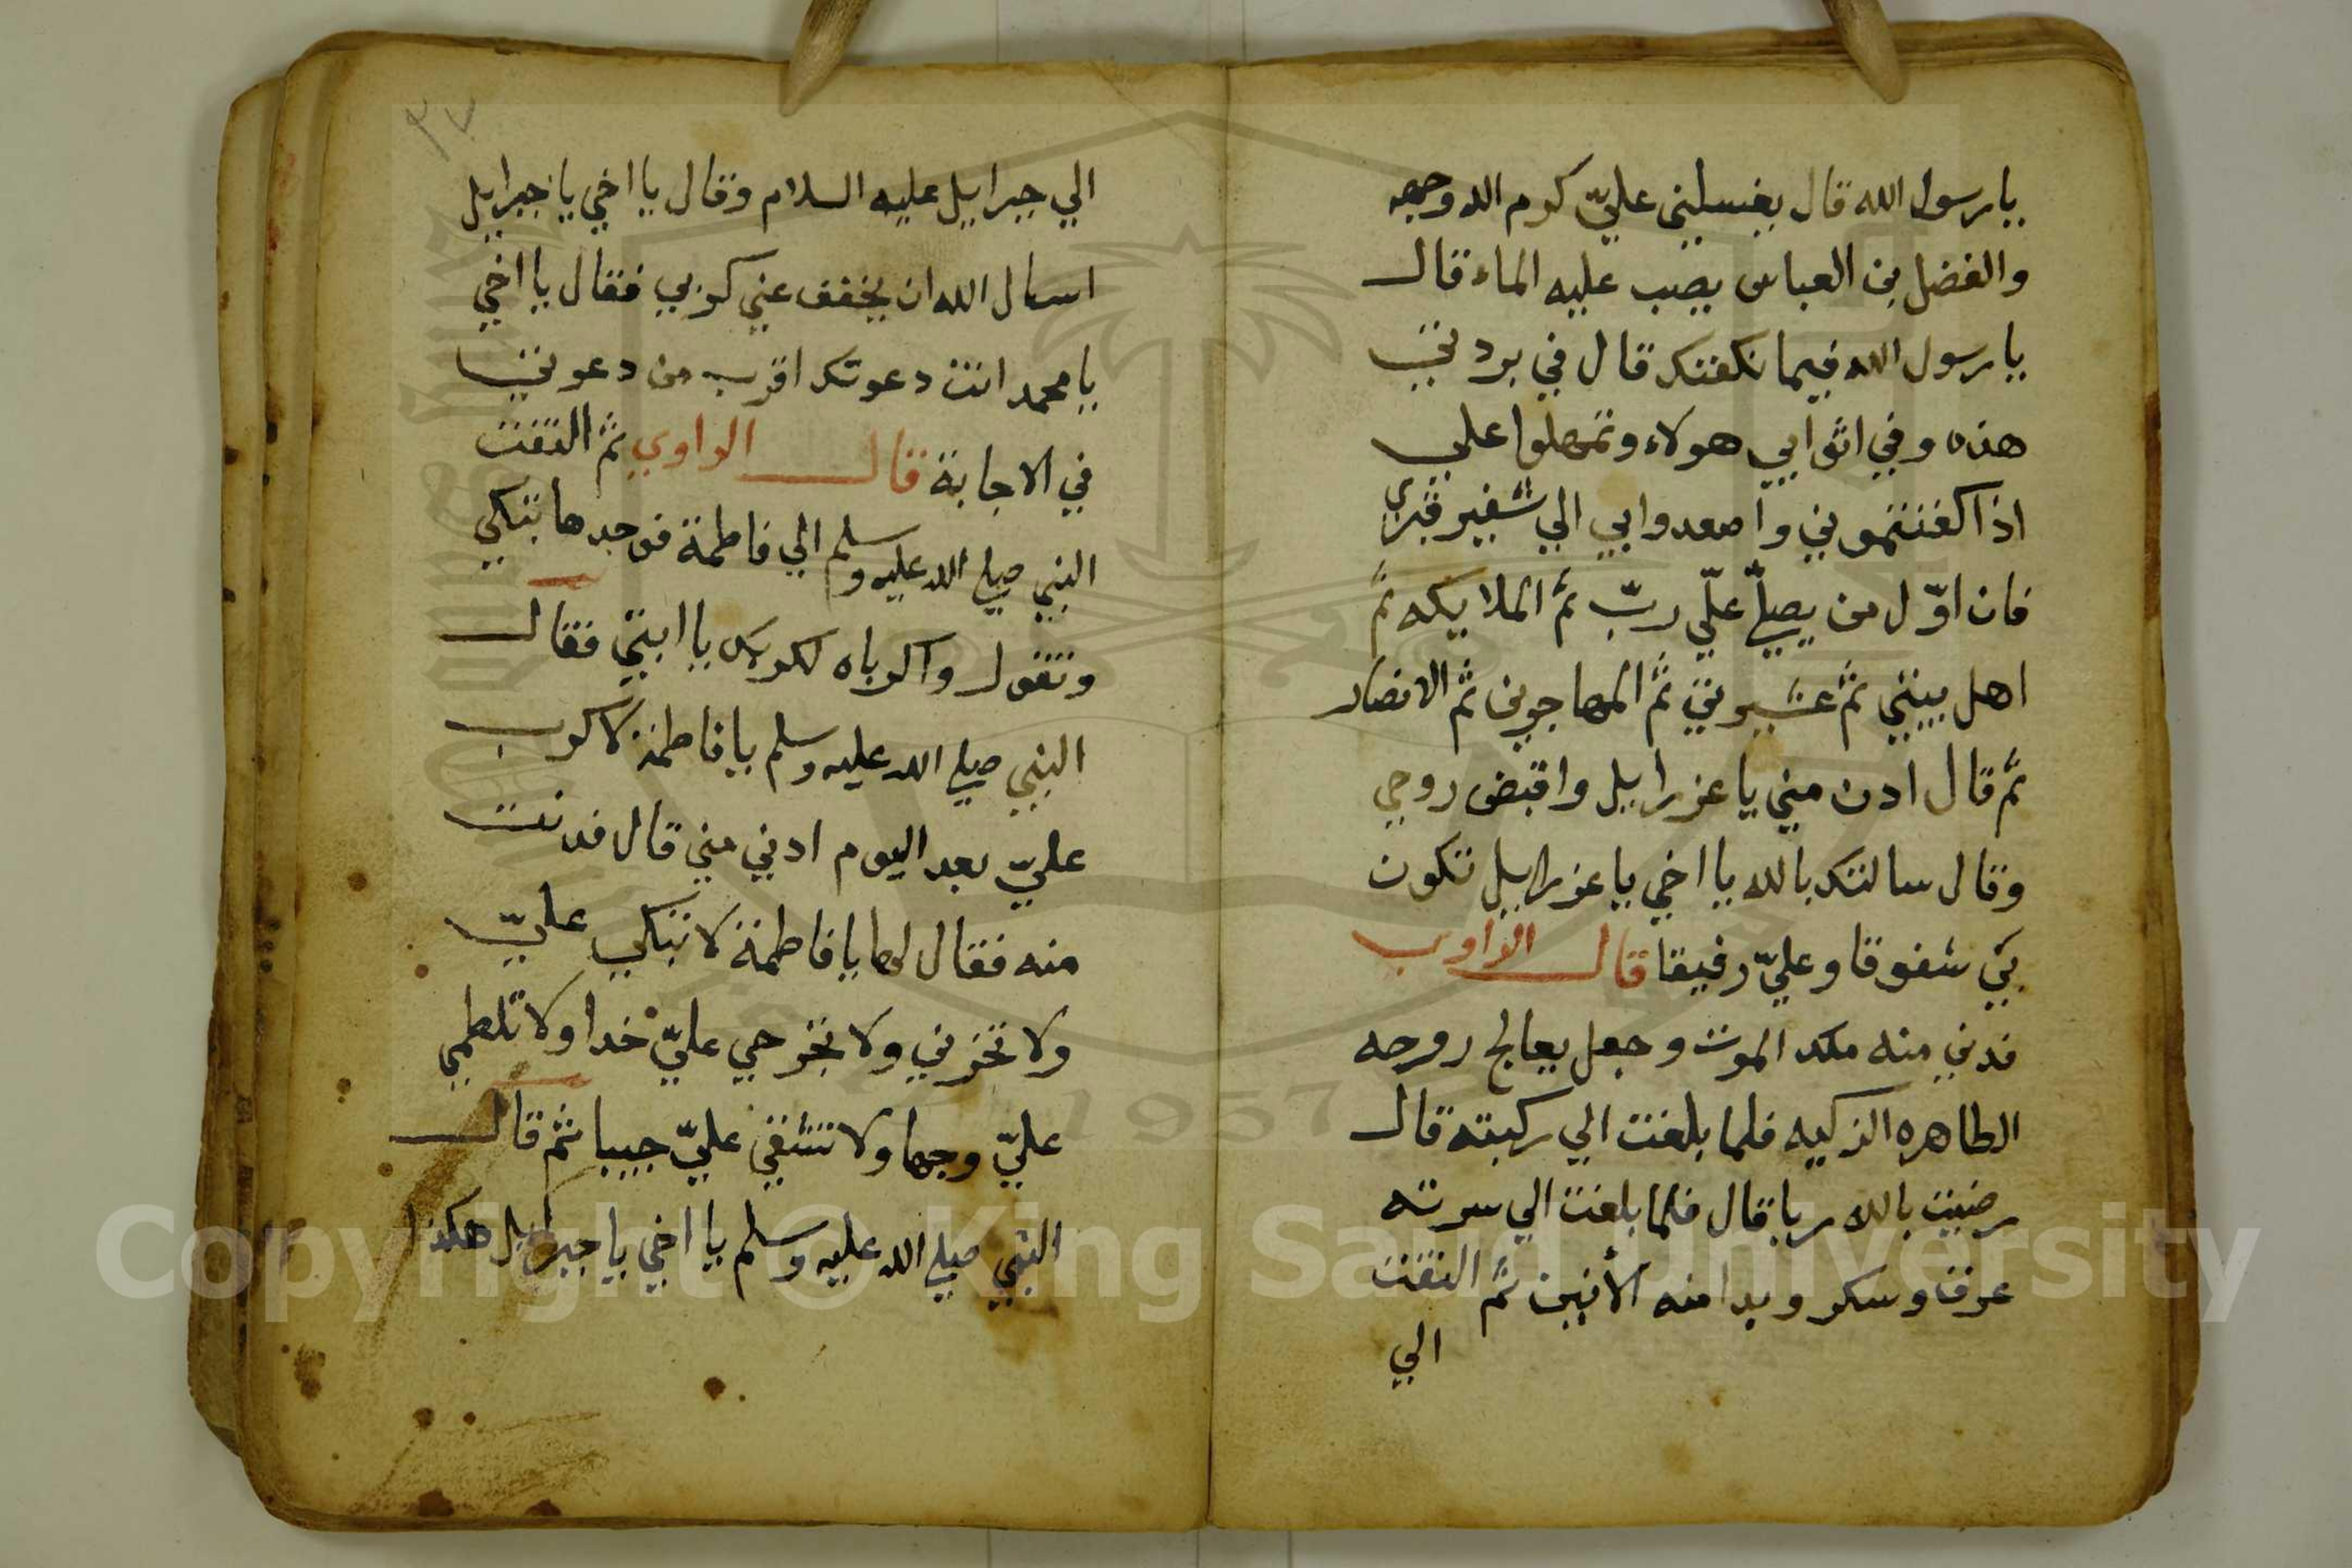 يا رسول الله قال يغسلني عليّ كرم الله وجهه
والفضل بن العباس يصب عليه الماء قال
يا رسول الله فيما نكفنك قال في بردتي
هذه وفي اثوابي هولاء وتمهلوا علي
اذا كفنتموني واصعدوا بي الي شفير قبري
فان اوّل من يصليّ عليّ ربّي ثمّ الملايكه ثمّ
اهل بيتي ثمّ عشيرتي ثمّ المهاجرين ثم الانصار
ثمّ قال ادن مني يا عزراييل واقبض روحي
وقال سالتك بالله يا اخي يا عزراييل تكون
بيّ شفوقا وعليّ رفيقا قال الراوي
فدني منه ملك الموت وجعل يعالج روحه
الطاهره الزكيه فلما بلغت الي ركبته قال
رضيت بالله ربا قال فلما بلغت الي سرته
عرق وسكر وبدا منه الأنين ثمّ التفت
الي
٣٧
الي جبراييل عليه السلام وقال يا اخي يا جبراييل
اسال الله ان يخفف عني كربي فقال يا اخي
يا محمد انت دعوتك اقرب من دعوتي
في الاجابة قال الراوي ثم التفت
النبي صلي الله عليه وسلم الي فاطمة فوجدها تبكي
وتقول واكرباه لكربك يا ابتي فقال
النبي صلي الله عليه وسلم يا فاطمة لا كرب
عليّ بعد اليوم ادني مني قال فدنت
منه فقال لها يا فاطمة لا تبكي عليّ
ولا تحزني ولا تجرحي عليّ خدا ولا تلطمي
عليّ وجها ولا تشقي عليّ جيبا ثم قال
النبي صلي الله عليه وسلم يا اخي يا جبراييل هكذا
Copyright © King Saud University
1957